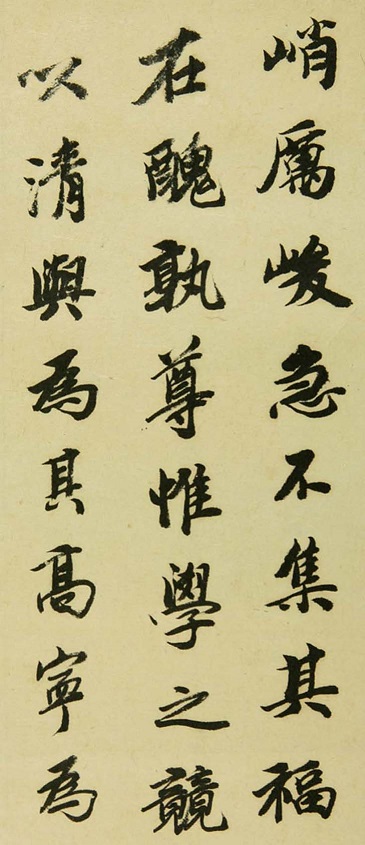 峭厲峻急不集其福
在醜孰尊惟學之競
以清與為其高寧為